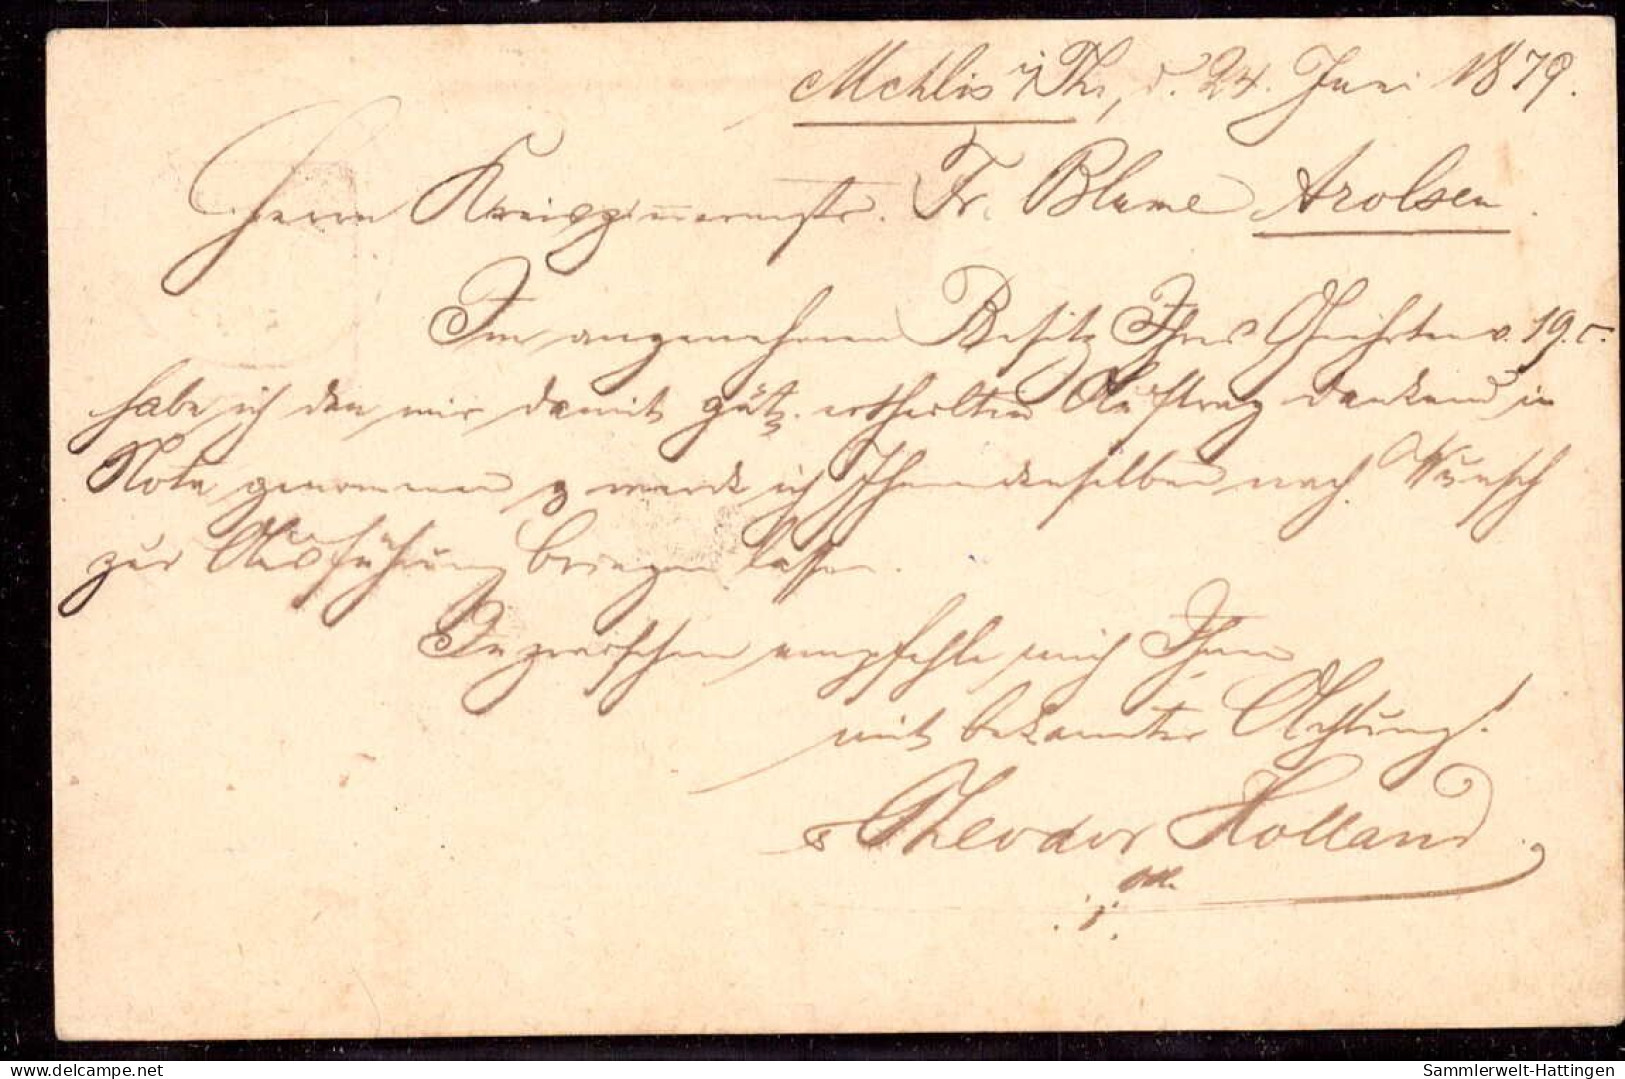 Mehlis i/Th, d. 24. Juni 1879.
Herrn Kreiszimmermstr. Fr. Blume Arolsen.
Im angenehmen Besitz Ihres Geehrten v. 19. c.
habe ich den mir damit güt. ertheilten Auftrag dankend in
Nota genommen & werde ich Ihnen denselben nach Wunsch
zur Ausführung bringen lassen.
Inzwischen empfehle mich Ihnen
mit bekannter Achtung!
Theodor Holland
delcampe.net
Sammlerwelt-Hattingen